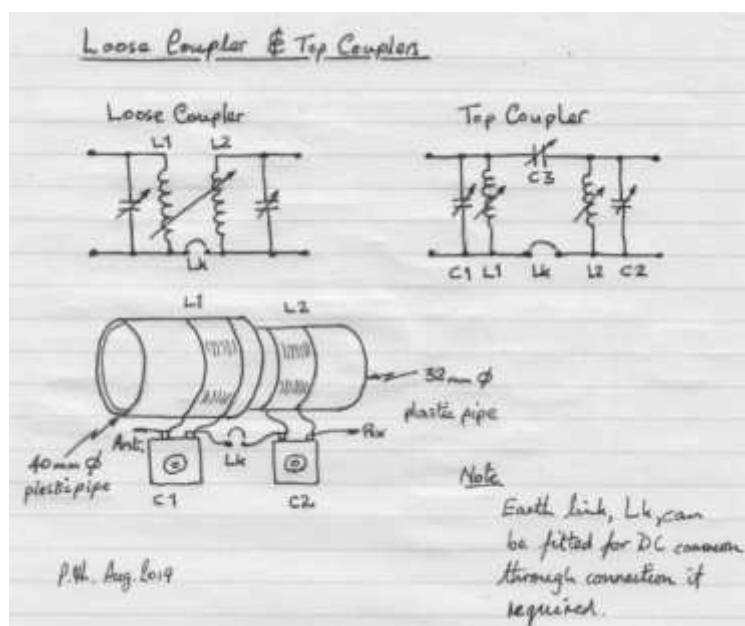 Loose Coupler & Top Couplers
Loose Coupler
L1 L2
Lk
Top Coupler
C3
C1 L1 Lk L2 C2
L1 L2
32mm φ
plastic pipe
Ant.
Lk
Rx
40mm φ
plastic pipe
C1 C2
Note
Earth link, Lk, can
be fitted for DC common
through connection if
required.
Aug. 2019